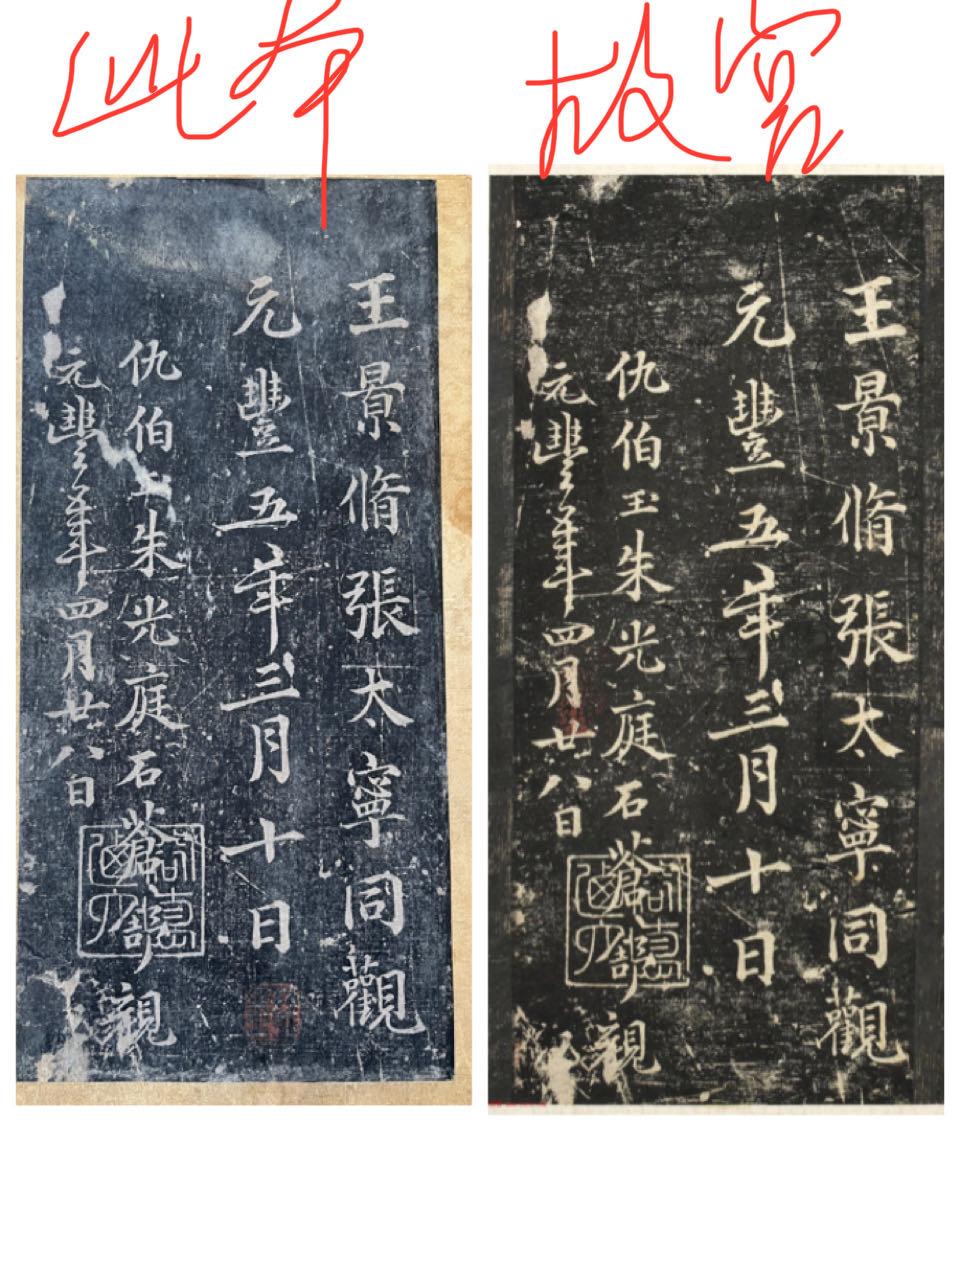 此本
故宫
王景脩張太寧同觀
元豐五年三月十日
仇伯玉朱光庭石蒼舒觀
元豐五年四月廿八日
王景脩張太寧同觀
元豐五年三月十日
仇伯玉朱光庭石蒼舒觀
元豐五年四月廿八日